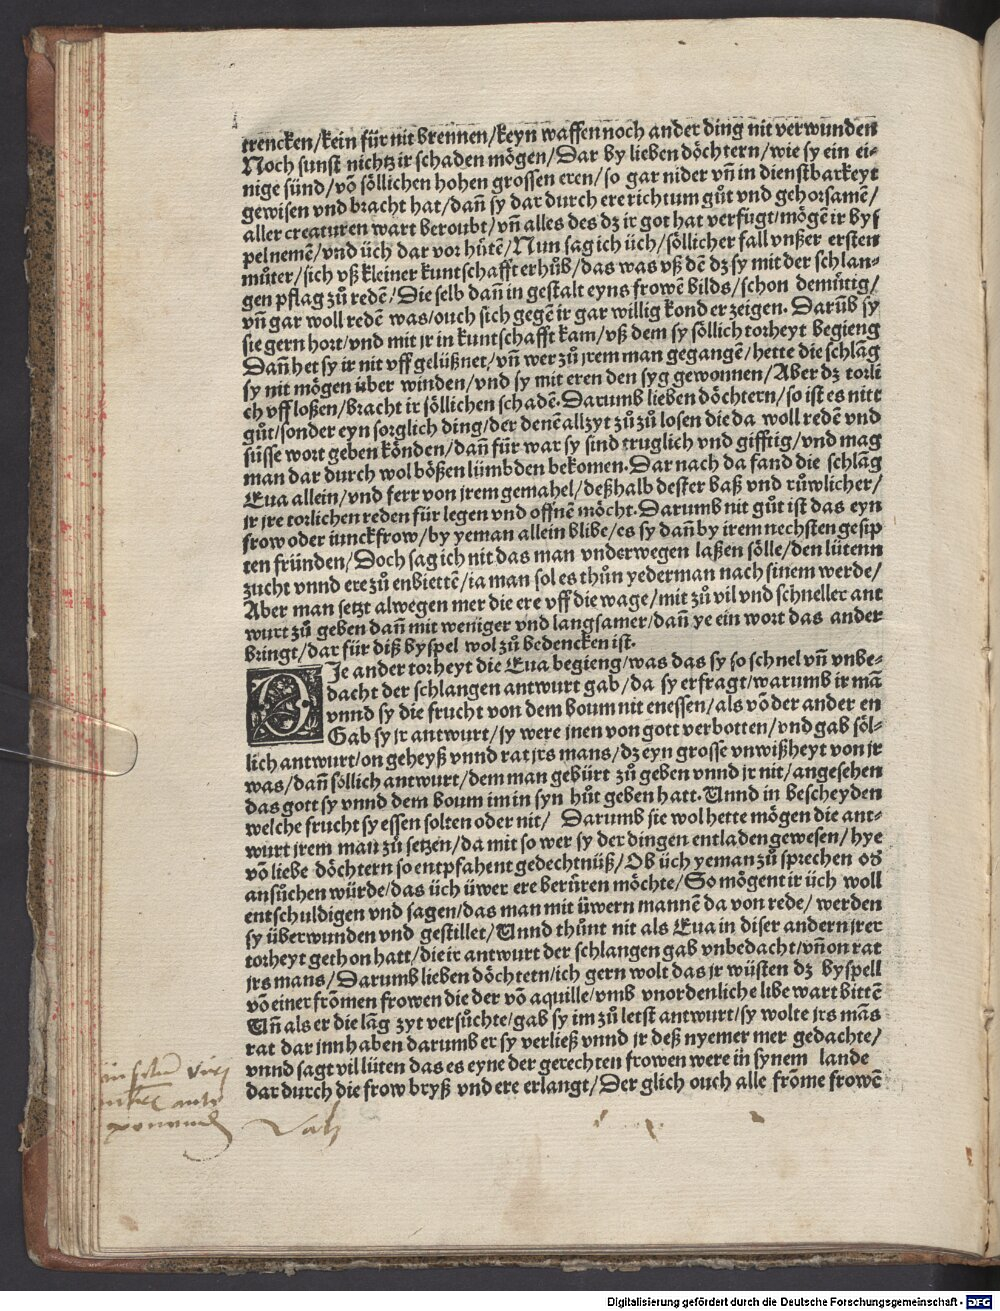 trencken/kein für nit brennen/keyn waffen noch ander ding nit verwunden
Noch sunst nichtz ir schaden mögen/Dar by lieben döchtern/wie sy ein ei-
nige sünd/võ söllichen hohen grossen eren/so gar nider vñ in dienstbarkeyt
gewisen vnd bracht hat/dañ sy dar durch ere richtum gůt vnd gehorsamē/
aller creaturen wart beroubt/vñ alles des dz ir got hat verfügt/mögē ir bys
pel nemē/vnd üch dar vor hütē/Nun sag ich üch/söllicher fall vnßer ersten
můter/sich vß kleiner kuntschafft erhůb/das was vß dē dz sy mit der schlan-
gen pflag zů redē/Die selb dañ in gestalt eyns frowē bilds/schon demütig/
vñ gar woll redē was/ouch sich gegē ir gar willig kond erzeigen. Darūb sy
sie gern hort/vnd mit jr in kuntschafft kam/vß dem sy söllich torheyt begieng
Dañ het sy ir nit vff gelüßnet/vñ wer zů jrem man gegangē/hette die schlāg
sy nit mögen über winden/vnd sy mit eren den syg gewonnen/Aber dz torli
ch vff loßen/bracht ir söllichen schadē. Darumb lieben döchtern/so ist es nitt
gůt/sonder eyn sorglich ding/der denē allzyt zů zů losen die da woll redē vnd
süsse wort geben könden/dañ für war sy sind truglich vnd gifftig/vnd mag
man dar durch wol bößen lümbden bekomen. Dar nach da fand die schlāg
Eua allein/vnd ferr von jrem gemahel/deßhalb dester baß vnd růwlicher/
jr jre torlichen reden für legen vnd offnē möcht. Darumb nit gůt ist das eyn
frow oder iunckfrow/by yeman allein blibe/es sy dañ by irem nechsten gesip
ten fründen/Doch sag ich nit das man vnderwegen laßen sölle/den lütenn
zucht vnnd ere zů enbiettē/ia man sol es thůn yederman nach sinem werde/
Aber man setzt alwegen mer die ere vff die wage/mit zů vil vnd schneller ant
wurt zů geben dañ mit weniger vnd langsamer/dañ ye ein wort das ander
bringt/dar für diß byspel wol zů bedencken ist.
DJe ander torheyt die Eua begieng/was das sy so schnel vñ vnbe-
dacht der schlangen antwurt gab/da sy erfragt/warumb ir mā
vnnd sy die frucht von dem boum nit enessen/als võ der ander en
Gab sy jr antwurt/sy were jnen von gott verbotten/vnd gab söl-
lich antwurt/on geheyß vnnd rat jrs mans/dz eyn grosse vnwißheyt von jr
was/dañ söllich antwurt/dem man gebürt zů geben vnnd jr nit/angesehen
das gott sy vnnd dem boum im in syn hůt geben hatt. Vnnd in bescheyden
welche frucht sy essen solten oder nit/ Darumb sie wol hette mögen die ant-
wurt jrem man zů setzen/da mit so wer sy der dingen entladen gewesen/hye
võ liebe döchtern so entpfahent gedechtnüß/Ob üch yeman zů sprechen od
ansůchen würde/das üch üwer ere berüren möchte/So mögent ir üch woll
entschuldigen vnd sagen/das man mit üwern mannē da von rede/werden
sy überwunden vnd gestillet/Vnnd thůnt nit als Eua in diser andern jrer
torheyt gethon hatt/die ir antwurt der schlangen gab vnbedacht/vñ on rat
jrs mans/Darumb lieben döchtetn/ich gern wolt das jr wüsten dz byspell
võ einer frõmen frowen die der võ aquille/vmb vnordenliche libe wart bittē
Vñ als er die lāg zyt versůchte/gab sy im zů letst antwurt/sy wolte jrs mās
rat dar jnn haben darumb er sy verließ vnnd jr deß nyemer mer gedachte/
vnnd sagt vil lüten das es eyne der gerechten frowen were in synem lande
dar durch die frow bryß vnd ere erlangt/Der glich ouch alle frõme frowē
Digitalisierung gefördert durch die Deutsche Forschungsgemeinschaft - DFG